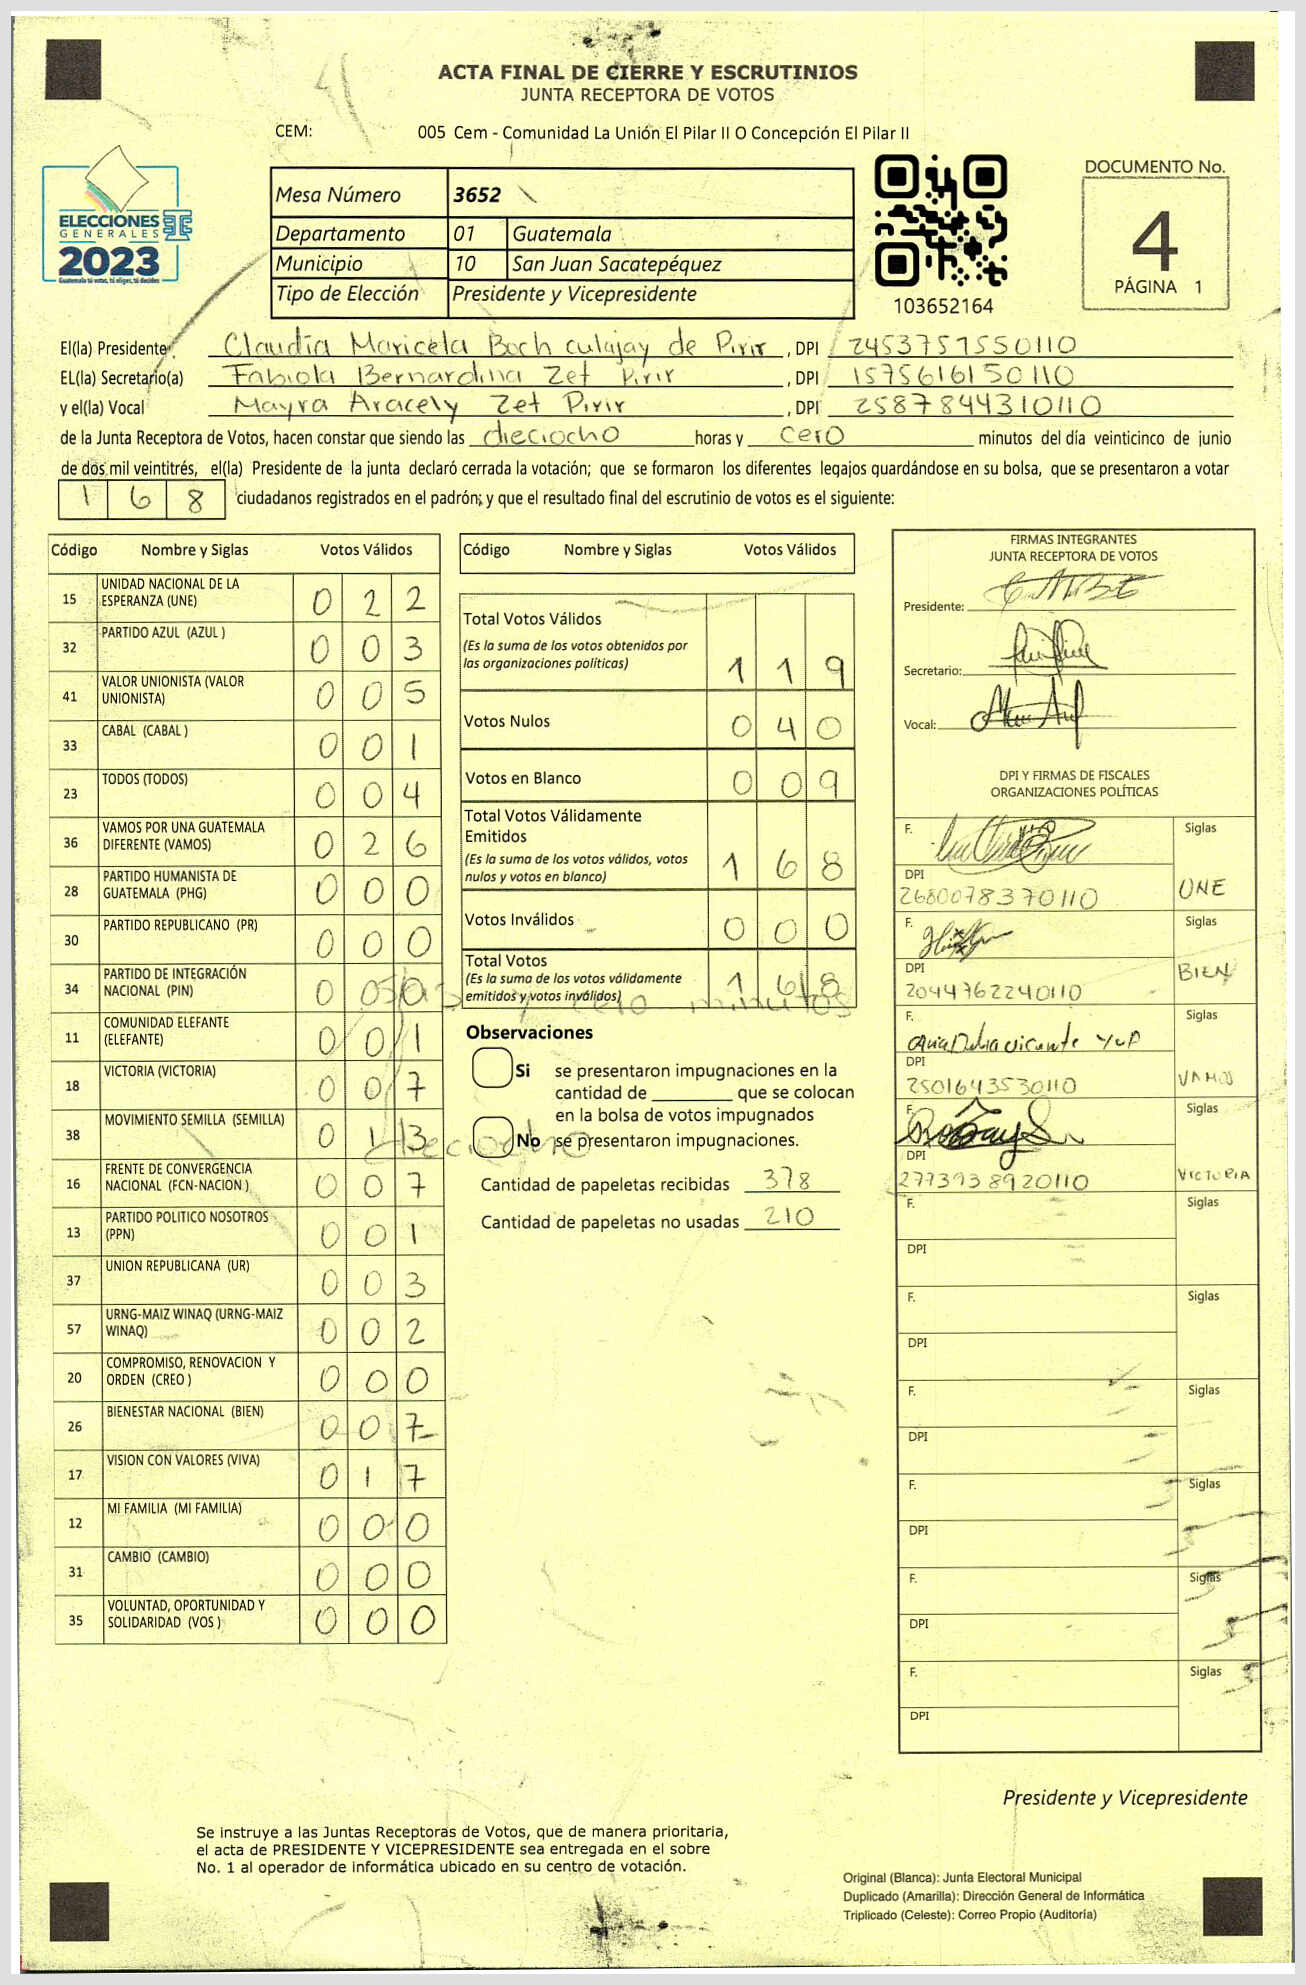 ACTA FINAL DE CIERRE Y ESCRUTINIOS
JUNTA RECEPTORA DE VOTOS
CEM: 005 Cem - Comunidad La Unión El Pilar II O Concepción El Pilar II
ELECCIONES
GENERALES
2023
Guatemala tú votas, tú eliges, tú decides
Mesa Número 3652
Departamento 01 Guatemala
Municipio 10 San Juan Sacatepéquez
Tipo de Elección Presidente y Vicepresidente
103652164
DOCUMENTO No.
4
PÁGINA 1
El(la) Presidente Claudia Maricela Boch culajay de Pirir, DPI 2453757550110
EL(la) Secretario(a) Fabiola Bernardina Zet Pirir, DPI 1575616150110
y el(la) Vocal Mayra Aracely Zet Pirir, DPI 2587844310110
de la Junta Receptora de Votos, hacen constar que siendo las dieciocho horas y cero minutos del día veinticinco de junio
de dos mil veintitrés, el(la) Presidente de la junta declaró cerrada la votación; que se formaron los diferentes legajos guardándose en su bolsa, que se presentaron a votar
168 ciudadanos registrados en el padrón; y que el resultado final del escrutinio de votos es el siguiente:
Código Nombre y Siglas Votos Válidos
15 UNIDAD NACIONAL DE LA ESPERANZA (UNE) 0 2 2
32 PARTIDO AZUL (AZUL ) 0 0 3
41 VALOR UNIONISTA (VALOR UNIONISTA) 0 0 5
33 CABAL (CABAL ) 0 0 1
23 TODOS (TODOS) 0 0 4
36 VAMOS POR UNA GUATEMALA DIFERENTE (VAMOS) 0 2 6
28 PARTIDO HUMANISTA DE GUATEMALA (PHG) 0 0 0
30 PARTIDO REPUBLICANO (PR) 0 0 0
34 PARTIDO DE INTEGRACIÓN NACIONAL (PIN) 0 0 0
11 COMUNIDAD ELEFANTE (ELEFANTE) 0 0 1
18 VICTORIA (VICTORIA) 0 0 7
38 MOVIMIENTO SEMILLA (SEMILLA) 0 1 3
16 FRENTE DE CONVERGENCIA NACIONAL (FCN-NACION ) 0 0 7
13 PARTIDO POLITICO NOSOTROS (PPN) 0 0 1
37 UNION REPUBLICANA (UR) 0 0 3
57 URNG-MAIZ WINAQ (URNG-MAIZ WINAQ) 0 0 2
20 COMPROMISO, RENOVACION Y ORDEN (CREO ) 0 0 0
26 BIENESTAR NACIONAL (BIEN) 0 0 7
17 VISION CON VALORES (VIVA) 0 1 7
12 MI FAMILIA (MI FAMILIA) 0 0 0
31 CAMBIO (CAMBIO) 0 0 0
35 VOLUNTAD, OPORTUNIDAD Y SOLIDARIDAD (VOS ) 0 0 0
Código Nombre y Siglas Votos Válidos
Total Votos Válidos
(Es la suma de los votos obtenidos por
las organizaciones politicas) 1 1 9
Votos Nulos 0 4 0
Votos en Blanco 0 0 9
Total Votos Válidamente
Emitidos
(Es la suma de los votos válidos, votos
nulos y votos en blanco) 1 6 8
Votos Inválidos 0 0 0
Total Votos
(Es la suma de los votos válidamente
emitidos y votos inválidos) 1 6 8
cero minutos
dieciocho
Observaciones
Si se presentaron impugnaciones en la
cantidad de ________ que se colocan
en la bolsa de votos impugnados
No se presentaron impugnaciones.
Cantidad de papeletas recibidas 378
Cantidad de papeletas no usadas 210
FIRMAS INTEGRANTES
JUNTA RECEPTORA DE VOTOS
Presidente:
Secretario:
Vocal:
DPI Y FIRMAS DE FISCALES
ORGANIZACIONES POLÍTICAS
F. Siglas
DPI
2680078370110 UNE
F. Siglas
DPI
2044762240110 BIEN
F. Siglas
DPI
2501643530110 VAMOS
F. Siglas
DPI
2773938920110 VICTORIA
F. Siglas
DPI
F. Siglas
DPI
F. Siglas
DPI
F. Siglas
DPI
F. Siglas
DPI
F. Siglas
DPI
Presidente y Vicepresidente
Se instruye a las Juntas Receptoras de Votos, que de manera prioritaria,
el acta de PRESIDENTE Y VICEPRESIDENTE sea entregada en el sobre
No. 1 al operador de informática ubicado en su centro de votación.
Original (Blanca): Junta Electoral Municipal
Duplicado (Amarilla): Dirección General de Informática
Triplicado (Celeste): Correo Propio (Auditoría)